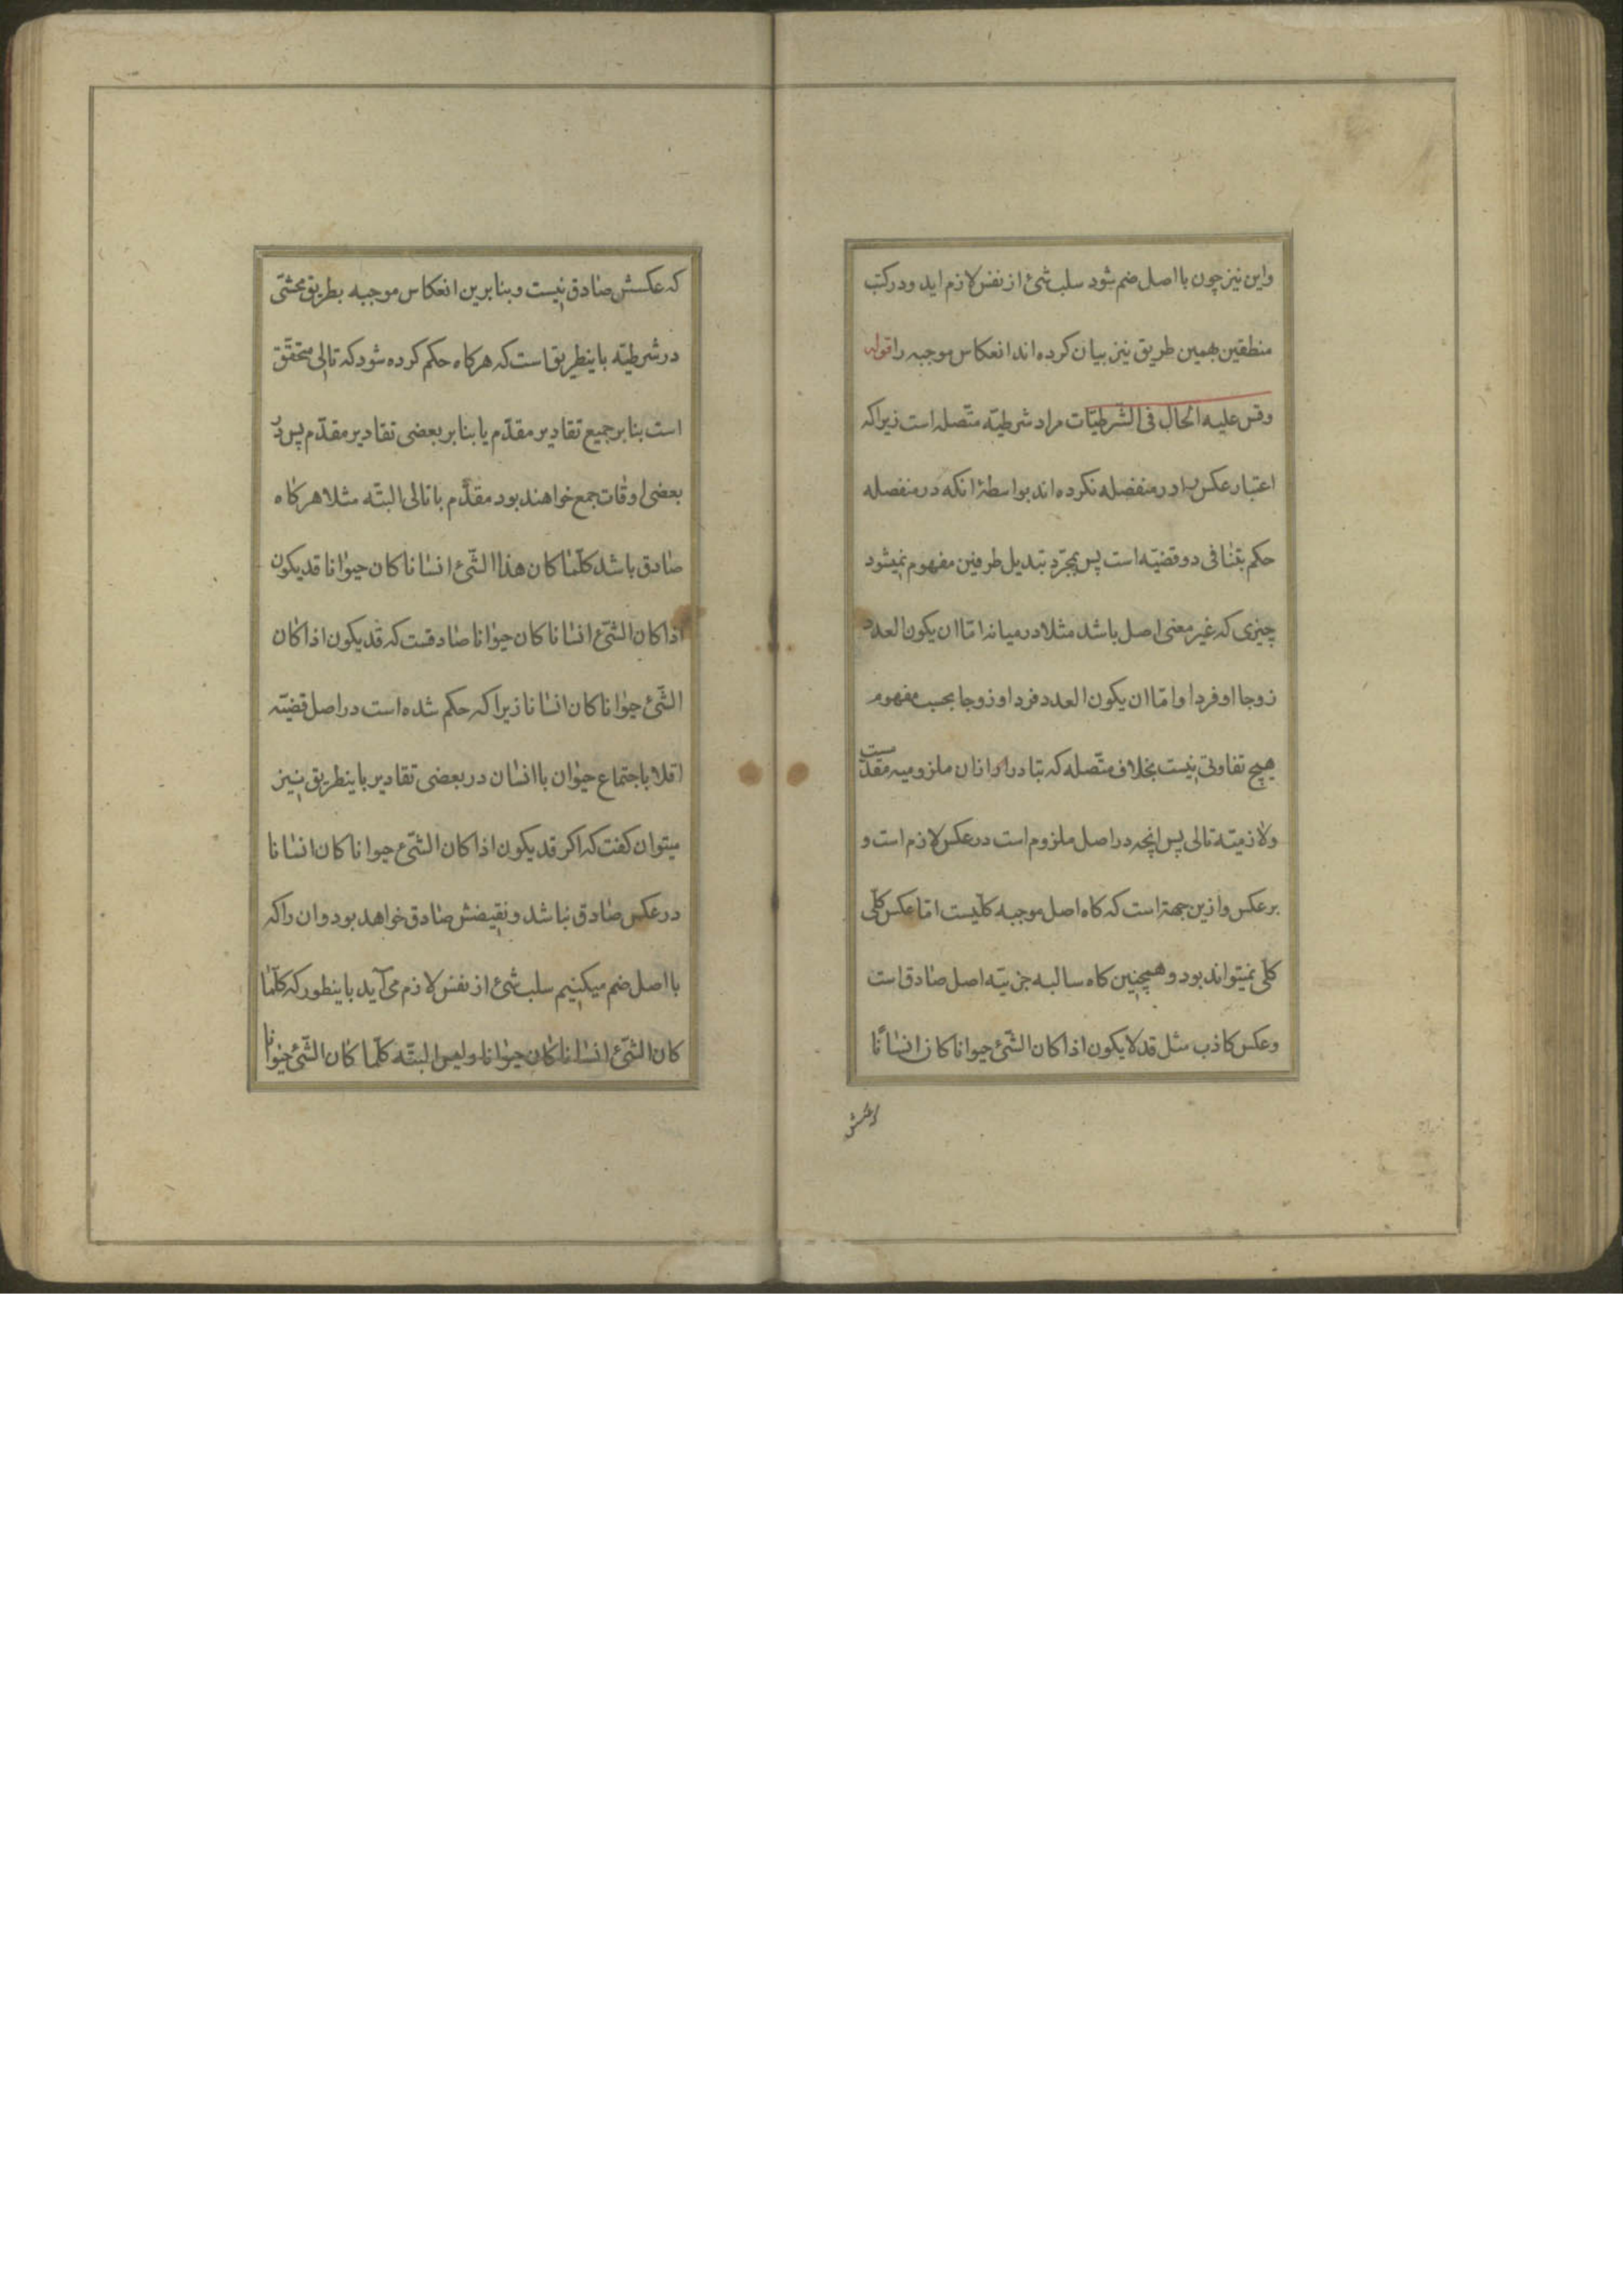 واین نیز چون با اصل ضم شود سلب شئ از نفس لازم اید و در کتب
منطقین بهمین طریق نیز بیان کرده اند انعکاس موجبه را قوله
وقس علیه الحال فی الشرطیّات مراد شرطیّه متّصله است زیرا که
اعتبار عکس را در منفصله نکرده اند بواسطۀ انکه در منفصله
حکم بتنافی دو قضیّه است پس بمجرّد تبدیل طرفین مفهوم نمیشود
چیزی که غیر معنی اصل باشد مثلا در میانه امّا ان یکون العدد
زوجا او فردا و امّا ان یکون العدد فردا او زوجا بحسب مفهوم
هیچ تفاوتی نیست بخلاف متّصله که تبادر از ان ملزومیه مقدّمست
ولازمیّه تالی پس انچه در اصل ملزوم است در عکس لازم است و
بر عکس وازین جهة است که کاه اصل موجبه کلّیست امّا عکس کلّی
کلّی نمیتواند بود و همچنین کاه سالبه جزییّه اصل صادق است
وعکس کاذب مثل قد لا یکون اذا کان الشّئ حیوانا کان انسٰانًا
که عکسش صٰادق نیست و بنا برین انعکاس موجبه بطریق محشّی
در شرطیّه باینطریق است که هر کاه حکم کرده شود که تالی متحقّق
است بنا بر جمیع تقادیر مقدّم یا بنا بر بعضی تقادیر مقدّم پس در
بعضی اوقات جمع خواهند بود مقدّم با تالی البتّه مثلا هر کاه
صٰادق باشد کلّمٰا کان هذا الشّئ انسٰانا کان حیوٰانا قد یکون
اذا کان الشّئ انسٰانا کان حیوٰانا صٰادقست که قد یکون اذا کان
الشّئ حیوٰانا کان انسٰانا زیرا که حکم شده است در اصل قضیّه
اقلا باجتماع حیوٰان با انسٰان در بعضی تقادیر باینطریق نیز
میتوان کفت که اکر قد یکون اذا کان الشّئ حیوانا کان انسٰانا
در عکس صٰادق نباشد و نقیضش صٰادق خواهد بود وان را که
با اصل ضم میکنیم سلب شئ از نفس لازم می آید باینطور که کلّمٰا
کان الشّئ انسٰانا کان حیوٰانا ولیس البتّه کلّما کٰان الشّئ حیوٰانا